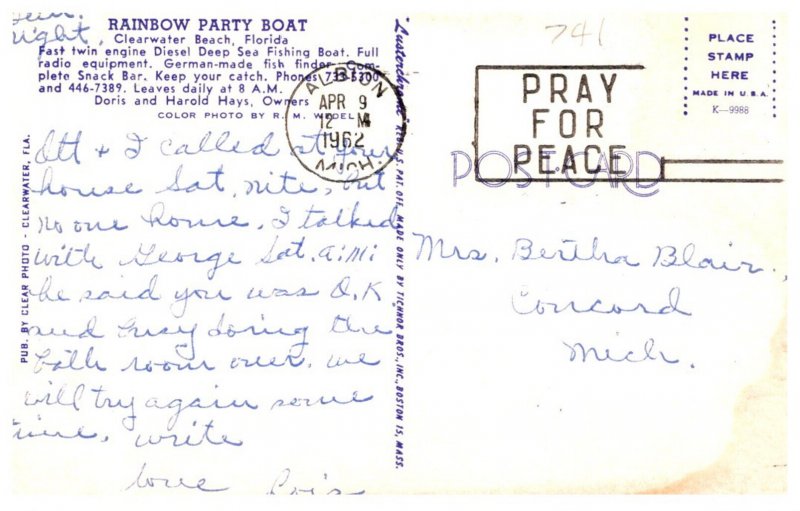 RAINBOW PARTY BOAT
Clearwater Beach, Florida
Fast twin engine Diesel Deep Sea Fishing Boat. Full
radio equipment. German-made fish finder. Com-
plete Snack Bar. Keep your catch. Phones 733-5300
and 446-7389. Leaves daily at 8 A.M.
Doris and Harold Hays, Owners
COLOR PHOTO BY R. M. WEDEL
night,
& I called at your
house Sat. nite, but
no one home. I talked
with George Sat. a.m.
he said you was O.K
and busy doing the
bath room over. we
will try again some
time. write
love Lois
PUB. BY CLEAR PHOTO - CLEARWATER, FLA.
REG. U.S. PAT. OFF. MADE ONLY BY TICHNOR BROS., INC., BOSTON 15, MASS.
ALBION
APR 9
12 M
1962
MICH.
741
PRAY
FOR
PEACE
POST CARD
PLACE
STAMP
HERE
MADE IN U.S.A.
K-9988
Mrs. Bertha Blair.,
Concord
Mich.